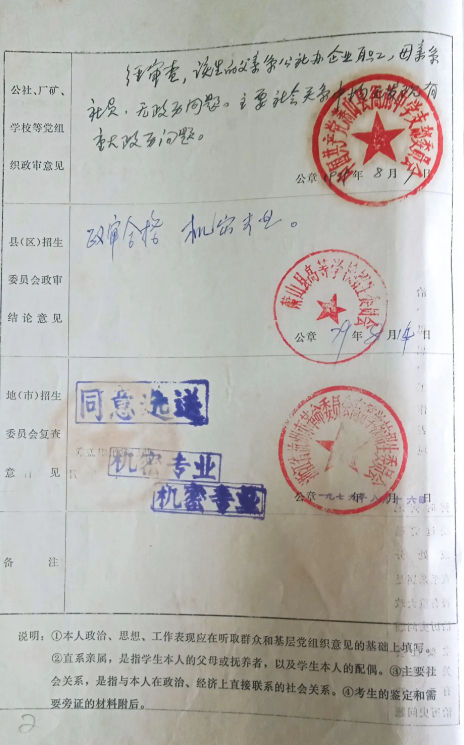 公社、厂矿、
学校等党组
织政审意见
经审查,该生的父亲系公社办企业职工,母亲系
社员,无政历问题。主要社会关系中均无
重大政历问题。
公章 年8月 日
县(区)招生
委员会政审
结论意见
政审合格 机密专业。
萧山县高等学校招生委员会
公章 79年8月14日
地(市)招生
委员会复查
意见
同意选送
机密专业
机密专业
公章 一九七九年八月十六日
备注
说明:①本人政治、思想、工作表现应在听取群众和基层党组织意见的基础上填写。
②直系亲属,是指学生本人的父母或抚养者,以及学生本人的配偶。③主要社
会关系,是指与本人在政治、经济上直接联系的社会关系。④考生的鉴定和需
要旁证的材料附后。
2